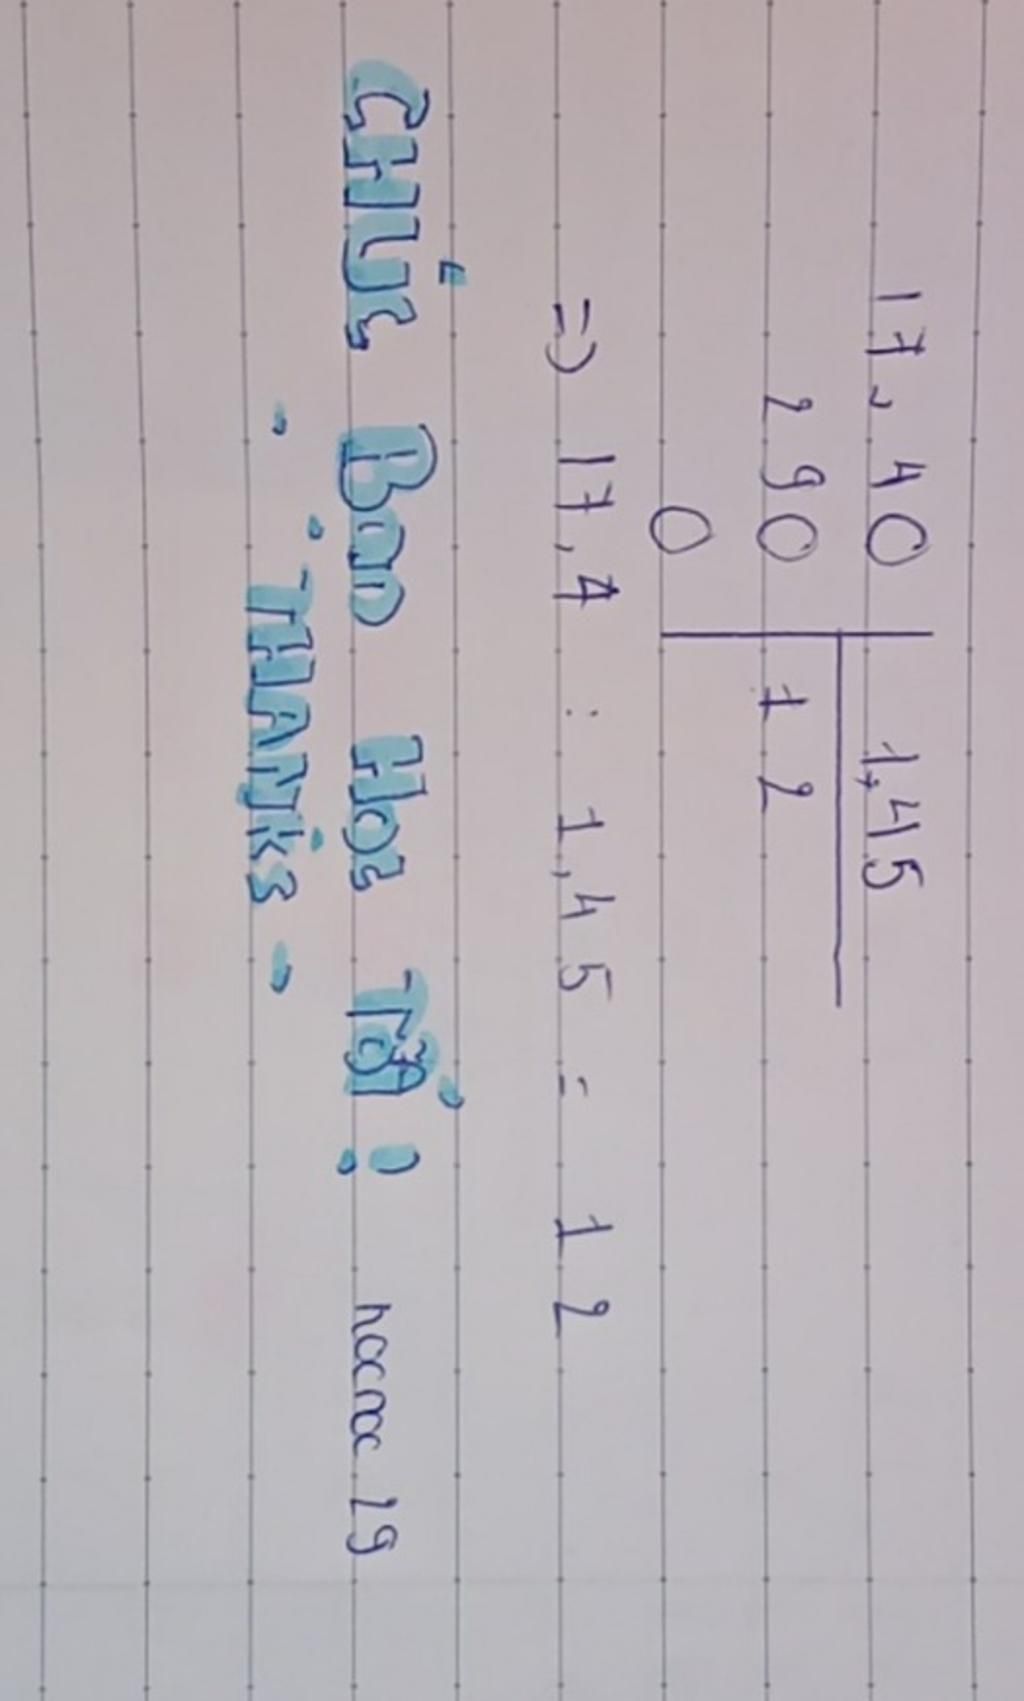 17,40 1,45
290 12
0
=> 17,4 : 1,45 = 12
CHÚC Bạn Học Tốt !
- THANKS -